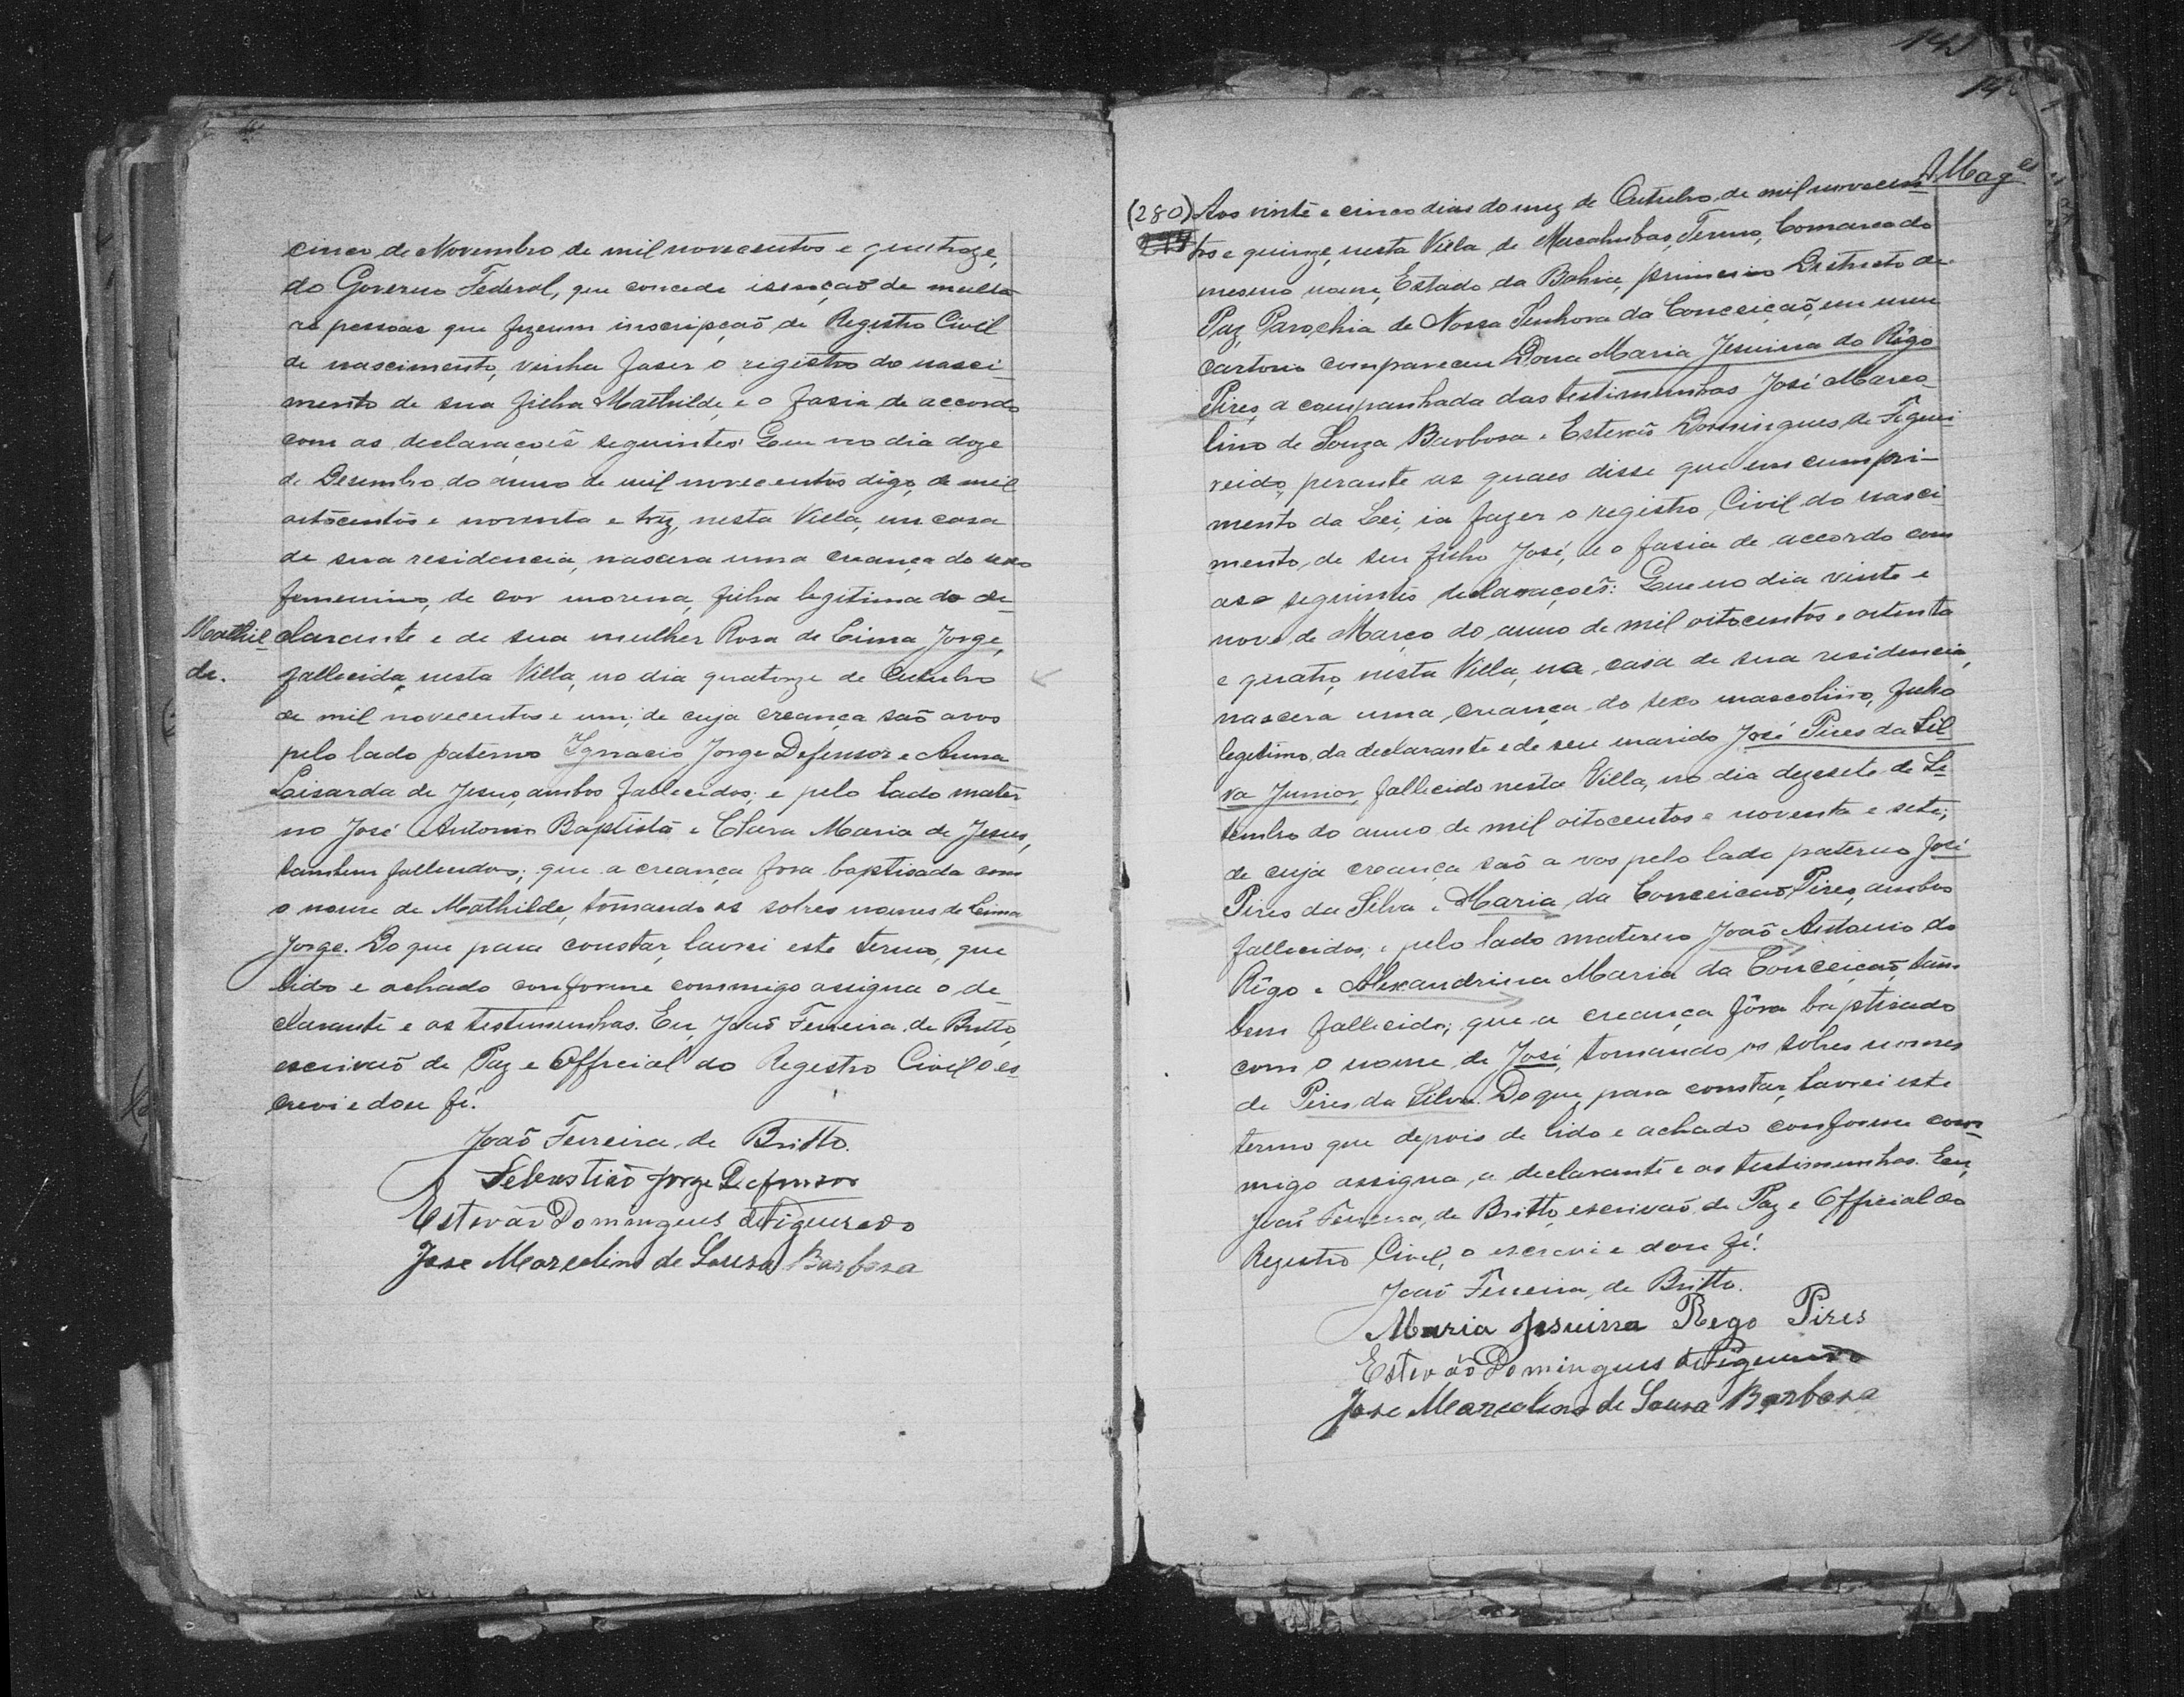 cinco de Novembro de mil novecentos e quatroze,
do Governo Federal, que concede isenção de multa
as pessoas que fizeum inscripção de Registro Civil
de nascimento, vinha faser o registro do nasci-
mento de sua filha Mathilde, e o fasia de accordo
com as declarações seguintes: Que no dia doze
de Desembro do anno de mil novecentos digo, de mil
oitocentos e noventa e trez, nesta Villa, em casa
de sua residencia, nascera uma creança do sexo
femenino, de cor morena, filha legitima do de-
Mathil-
de.
clarante e de sua mulher Rosa de Lima Jorge,
fallecida, nesta Villa, no dia quatorze de Outubro
de mil novecentos e um; de cuja creança saõ avos
pelo lado paterno Ignacio Jorge Defensor e Anna
Loisarda de Jesus, ambos fallecidos; e pelo lado mater
no José Antonio Baptista e Clara Maria de Jesus,
tambem fallecidos; que a creança fora baptisada com
o nome de Mathilde, tomando os sobres nomes de Lima
Jorge. Do que para constar, lavrei este termo, que
lido e achado conforme commigo assigna o de-
clarante e as testimunhas. Eu, João Ferreira de Britto,
escrivaõ de Paz e Official do Registro Civil o es-
crevi e dou fé.
João Ferreira de Britto.
Sebastião Jorge Defensor
Estevão Domingues de Figueredo
Jose Marcolino de Sousa Barbosa
143
(280) Aos vinte e cinco dias do mez de Outubro, de mil novecen-
tos e quinze, nesta Villa de Macahubas, Termo, Comarca do
mesmo nome, Estado da Bahia, primeiro Districto de
Paz, Parochia de Nossa Senhora da Conceição, em meu
cartorio compareceu Dona Maria Jesuina do Rêgo
Pires, a companhada das testimunhas José Marco-
lino de Souza Barbosa e Estevão Domingues de Figuei
reido, perante as quaes disse que em cumpri-
mento da Lei, ia fazer o registro Civil do nasci-
mento, de seu filho José, e o fasia de accordo com
as seguintes declarações: Que no dia vinte e
nove de Março do anno de mil oitocentos e oitenta
e quatro, nesta Villa, na casa de sua residencia,
nascera uma creança do sexo mascolino, filho
legitimo, da declarante e de seu marido José Pires da Sil
va Junior, fallecido nesta Villa, no dia dezesete de Se
tembro do anno de mil oitocentos e noventa e sete;
de cuja creança saõ a vos pelo lado paterno José
Pires da Silva e Maria da Conceicão Pires, ambos
fallecidos; e pelo lado materno João Antonio do
Rêgo e Alexandrina Maria da Conceição, tam-
bem fallecidos; que a creança fôra baptisado
com o nome de José, tomando os sobres nomes
de Pires da Silva. Do que, para constar, lavrei este
termo que depois de lido e achado conforme com-
migo assigna, a declarante e as testimunhas. Eu,
João Ferreira, de Britto, escrivaõ de Paz e Official do
Registro Civil, o escrevi e dou fé.
João Ferreira de Britto.
Maria Jesuina Rego Pires
Estevão Domingues de Figueredo
Jose Marcolino de Sousa Barbosa